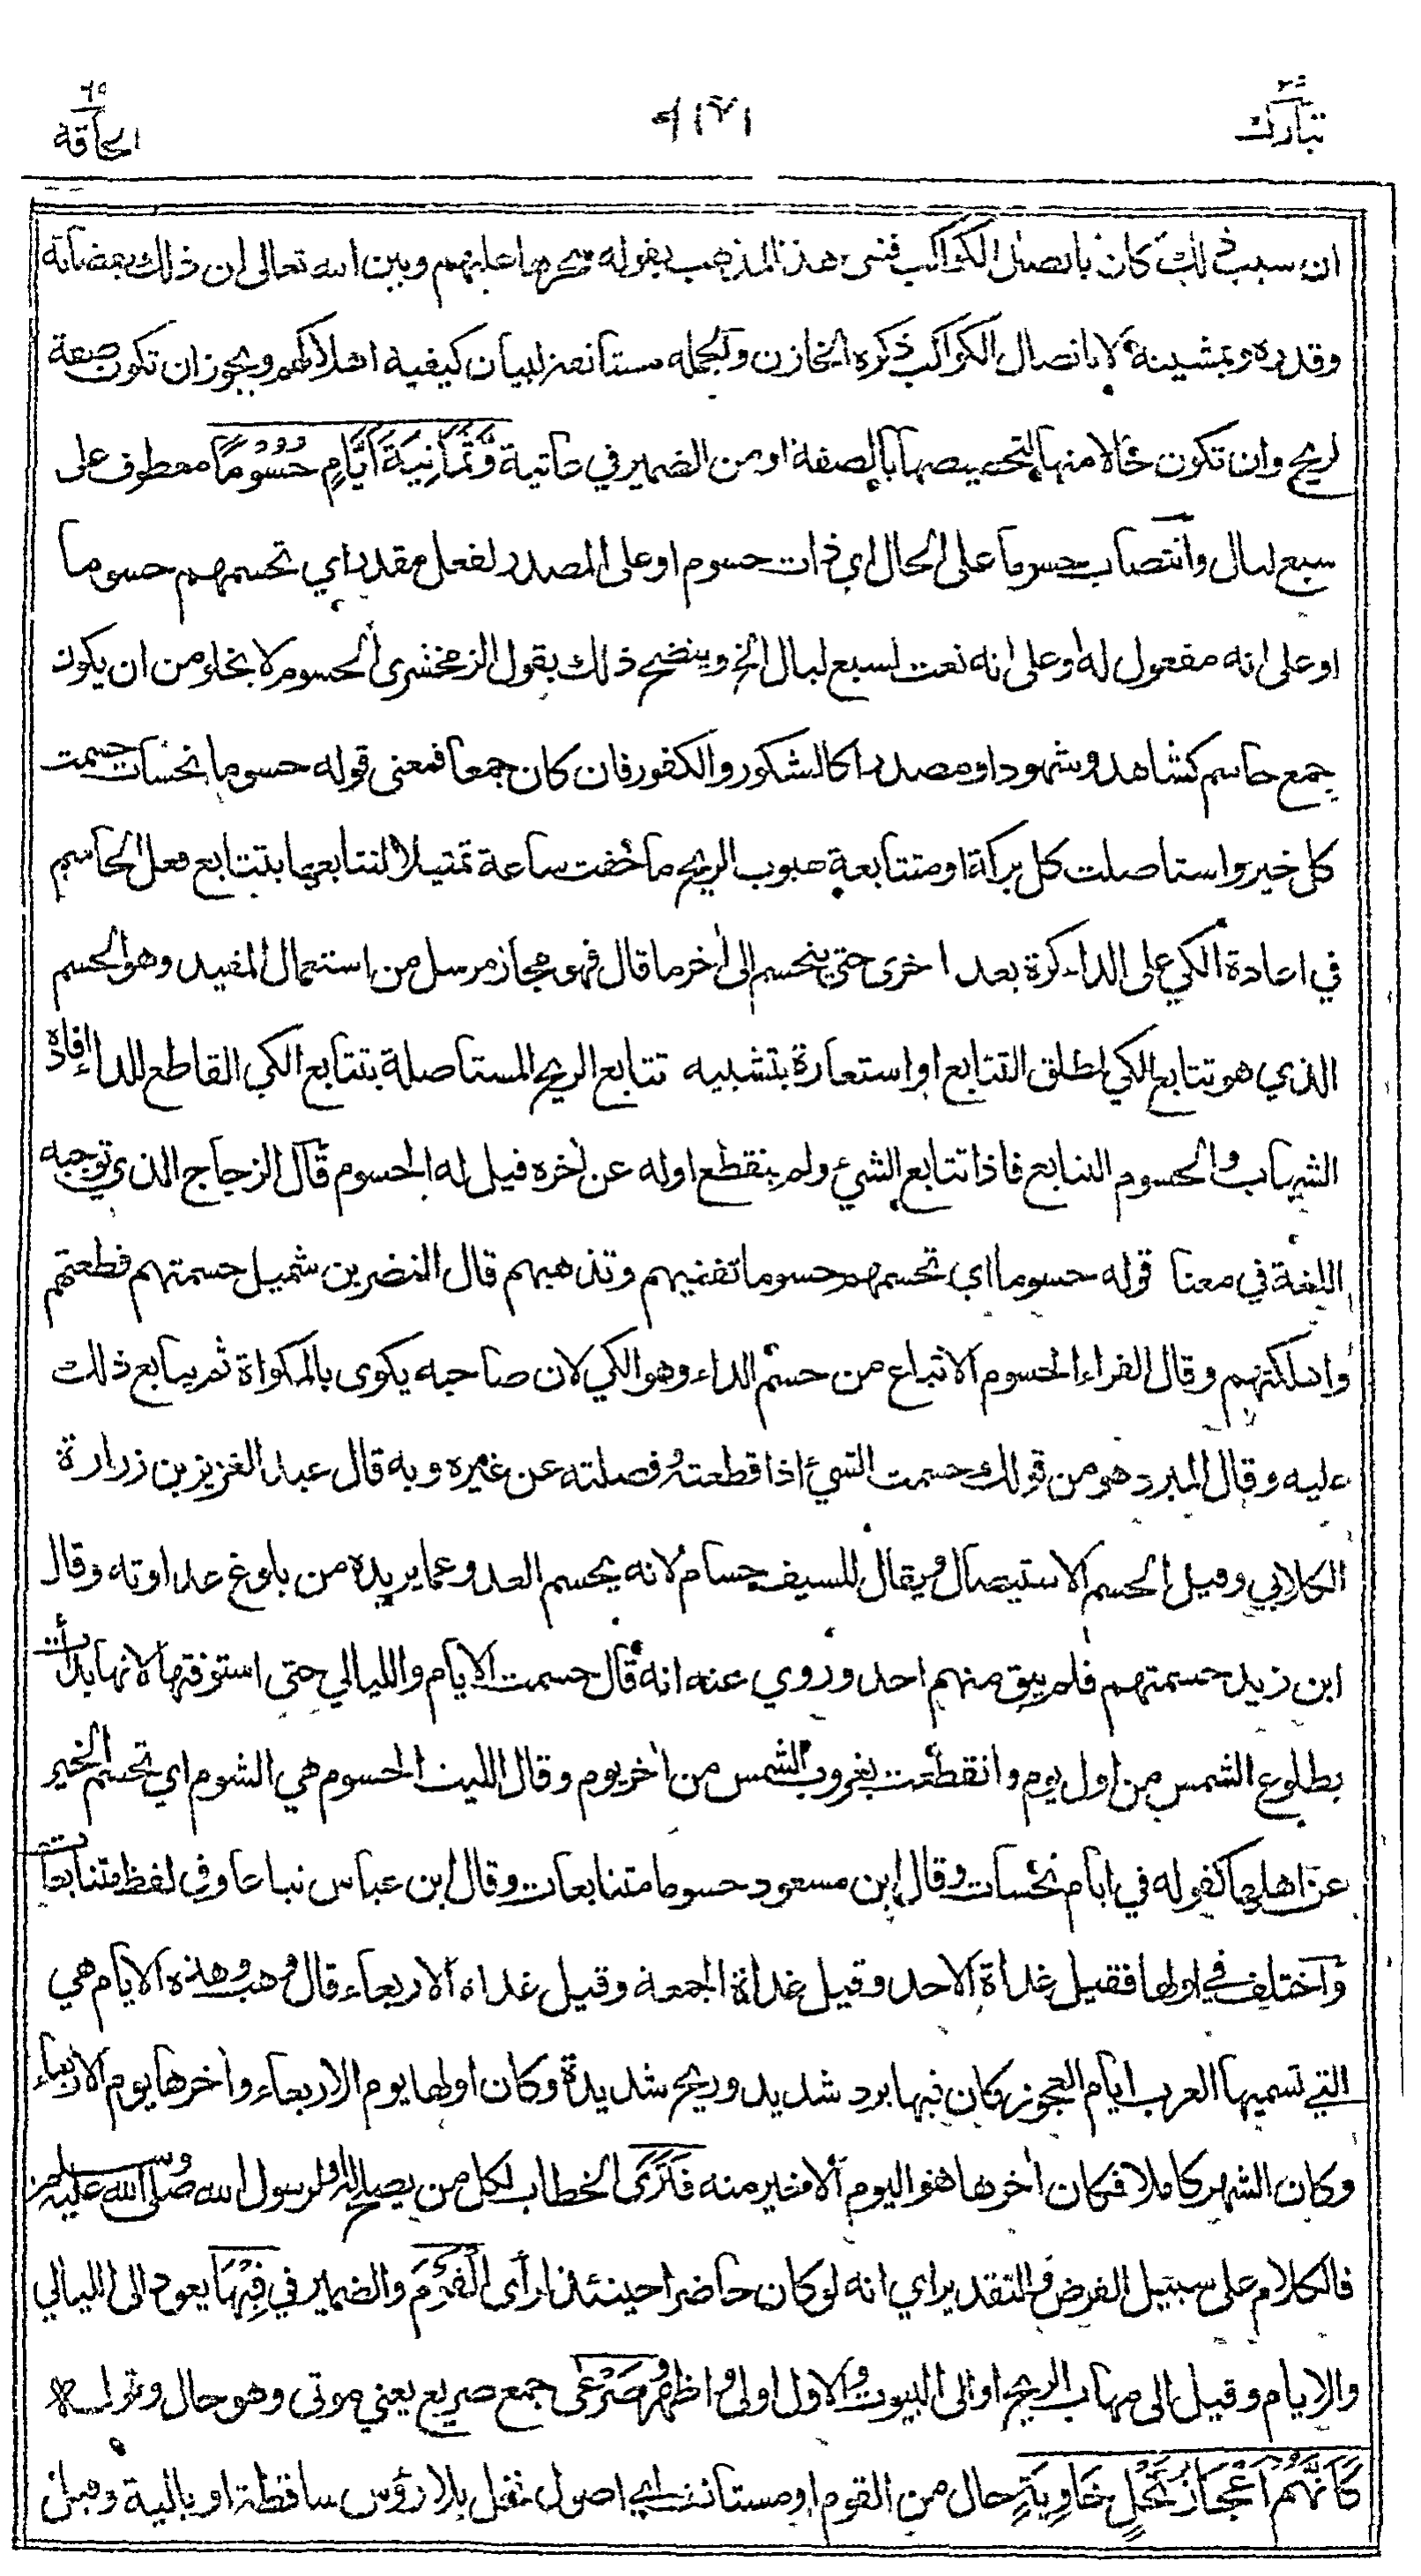 تبارك ٢٩
١٧١
الحاقة ٦٩
ان سبب ذلك كان باتصال الكواكب فنفى هذا المذهب بقوله سخرها عليهم وبين الله تعالى ان ذلك بقضائه
وقدره وبمشيئته لا باتصال الكواكب ذكره الخازن والجملة مستانفة لبيان كيفية اهلاكهم ويجوز ان تكون صفة
لريح وان تكون حالا منها لتخصيصها بالصفة او من الضمير في عاتية وَّثَمٰنِيَةَ اَيَّامٍ حُسُوْمًا معطوف على
سبع ليال وانتصاب حسوما على الحال اي ذات حسوم او على المصدر لفعل مقدر اي تحسمهم حسوما
او على انه مفعول له او على انه نعت لسبع ليال الخ ويتضح ذلك بقول الزمخشرى الحسوم لا يخلو من ان يكون
جمع حاسم كشاهد وشهود او مصدرا كالشكور والكفور فان كان جمعا فمعنى قوله حسوما نحسات حسمت
كل خير واستاصلت كل بركة او متتابعة هبوب الريح ما خفت ساعة تمثيلا لتتابعها بتتابع فعل الحاسم
في اعادة الكي على الداء كرة بعد اخرى حتى ينحسم الى أخر ما قال فهو مجاز مرسل من استعمال المفيد وهو الحسم
الذي هو تتابع الكي لمطلق التتابع او استعارة بتشبيه تتابع الريح المستاصلة بتتابع الكي القاطع للداء افاده
الشهاب والحسوم التتابع فاذا تتابع الشيء ولم ينقطع اوله عن أخره قيل له الحسوم قال الزجاج الذي توجبه
اللغة في معنا قوله حسوما اي تحسمهم حسوما تفنيهم وتذهبهم قال النضر بن شميل حسمتهم قطعتهم
واهلكتهم وقال الفراء الحسوم الاتباع من حسم الداء وهو الكي لان صاحبه يكوى بالمكواة ثم يتابع ذلك
عليه وقال المبرد هو من قولك حسمت الشيء اذا قطعته وفصلته عن غيره وبه قال عبد العزيز بن زرارة
الكلابي وقيل الحسم الاستيصال ويقال للسيف حسام لانه يحسم العدو عما يريده من بلوغ عداوته وقال
ابن زيد حسمتهم فلم يبق منهم احد وروي عنه انه قال حسمت الايام والليالي حتى استوفتها لانها بدأت
بطلوع الشمس من اول يوم وانقطعت بغروب الشمس من أخر يوم وقال الليث الحسوم هي الشوم اي تحسم الخير
عن اهلها كقوله في ايام نحسات وقال ابن مسعود حسوما متتابعات وقال ابن عباس تباعا وفي لفظ متتابعات
واختلف في اولها فقيل غداة الاحد وقيل غداة الجمعة وقيل غداة الاربعاء قال وهب وهذه الايام هي
التي تسميها العرب ايام العجوز كان فيها برد شديد وريح شديدة وكان اولها يوم الاربعاء وأخرها يوم الاربعاء
وكان الشهر كاملا فكان أخرها هو اليوم الاخير منه فَتَرَى الخطاب لكل من يصلح له او لرسول الله صلى الله عليه وسلم
فالكلام على سبيل الفرض والتقدير اي انه لو كان حاضرا حينئذ لرأى الْقَوْمَ والضمير في فِيْهَا يعود الى الليالي
والايام وقيل الى مهاب الريح او الى البيوت والاول اولى واظهر صَرْعٰى جمع صريع يعني موتى وهو حال وقوله
كَاَنَّهُمْ اَعْجَازُ نَخْلٍ خَاوِيَةٍ حال من القوم او مستانفة اي اصول نخل بلا رؤس ساقطة او بالية وقيل